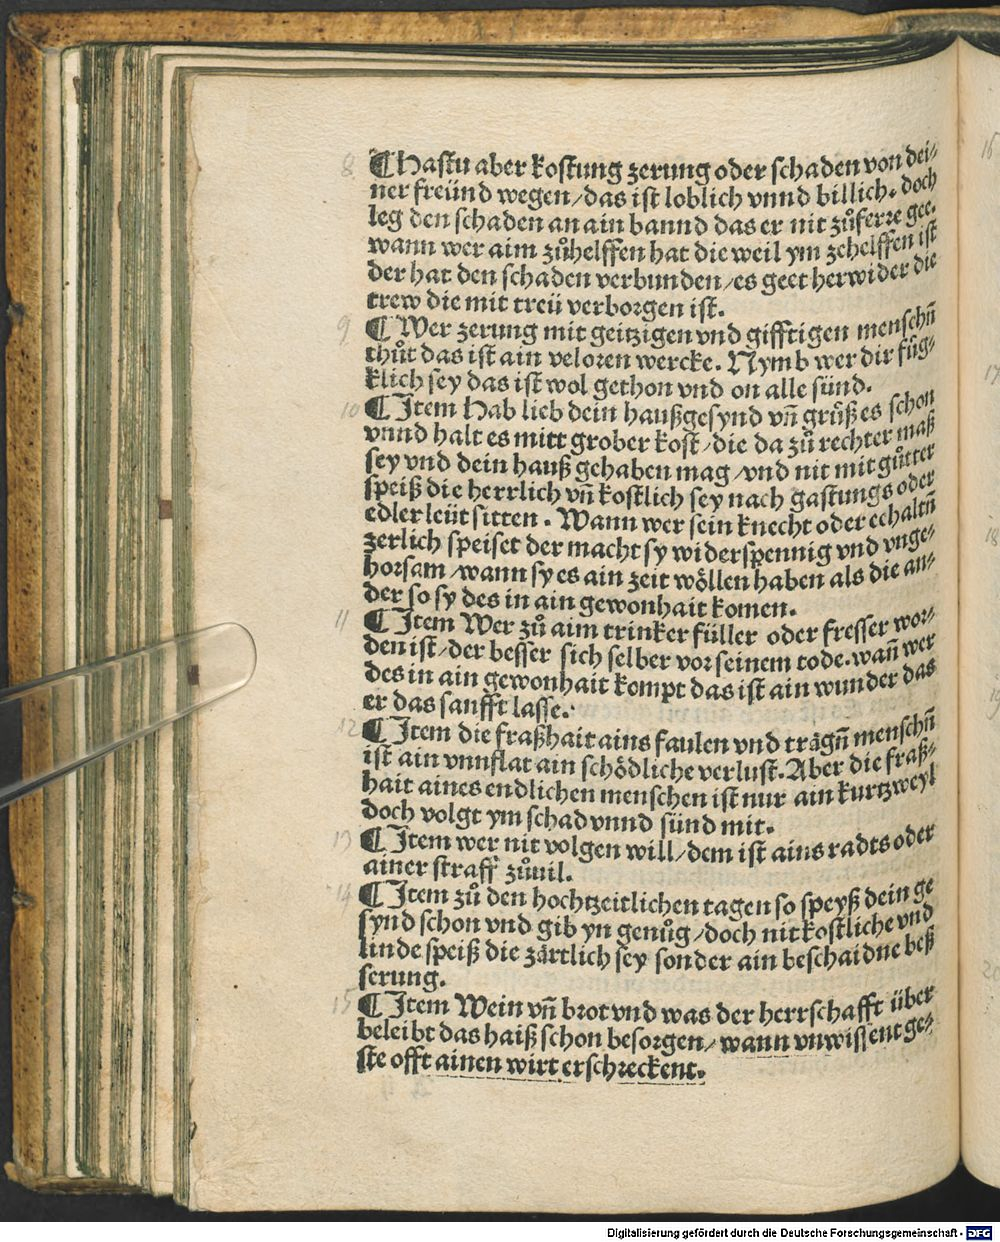 8 ¶ Hastu aber kostung zerung oder schaden von dei⸗
ner freünd wegen/das ist loblich vnnd billich. doch
leg den schaden an ain bannd das er nit zůferre gee.
wann wer aim zůhelffen hat die weil ym zehelffen ist
der hat den schaden verbunden/es geet herwider die
trew die mit treü verborgen ist.
9 ¶ Wer zerung mit geitzigen vnd gifftigen menschñ
thůt das ist ain veloren wercke. Nymb wer dir fůg⸗
klich sey das ist wol gethon vnd on alle sünd.
10 ¶ Item Hab lieb dein haußgesynd vñ grůß es schon
vnnd halt es mitt grober kost/die da zů rechter maß
sey vnd dein hauß gehaben mag/vnd nit mit gůtter
speiß die herrlich vñ kostlich sey nach gastungs oder
edler leüt sitten. Wann wer sein knecht oder echaltñ
zerlich speiset der macht sy widerspennig vnd vnge⸗
horsam/wann sy es ain zeit wöllen haben als die an⸗
der so sy des in ain gewonhait komen.
11 ¶ Item Wer zů aim trinker füller oder fresser wor⸗
den ist/der besser sich selber vor seinem tode. wañ wer
des in ain gewonhait kompt das ist ain wunder das
er das sanfft lasse.
12 ¶ Item die fraßhait ains faulen vnd trägñ menschñ
ist ain vnnflat ain schödliche verlust. Aber die fraß⸗
hait aines endlichen menschen ist nur ain kurtzweyl
doch volgt ym schad vnnd sünd mit.
13 ¶ Item wer nit volgen will/dem ist ains radts oder
ainer straff zůuil.
14 ¶ Item zů den hochtzeitlichen tagen so speyß dein ge
synd schon vnd gib yn genůg/doch nit kostliche vnd
linde speiß die zärtlich sey sonder ain beschaidne beß
serung.
15 ¶ Item Wein vñ brot vnd was der herrschafft über
beleibt das haiß schon besorgen/wann vnwissent ge⸗
ste offt ainen wirt erschreckent.
16
17
18
19
20
Digitalisierung gefördert durch die Deutsche Forschungsgemeinschaft - DFG